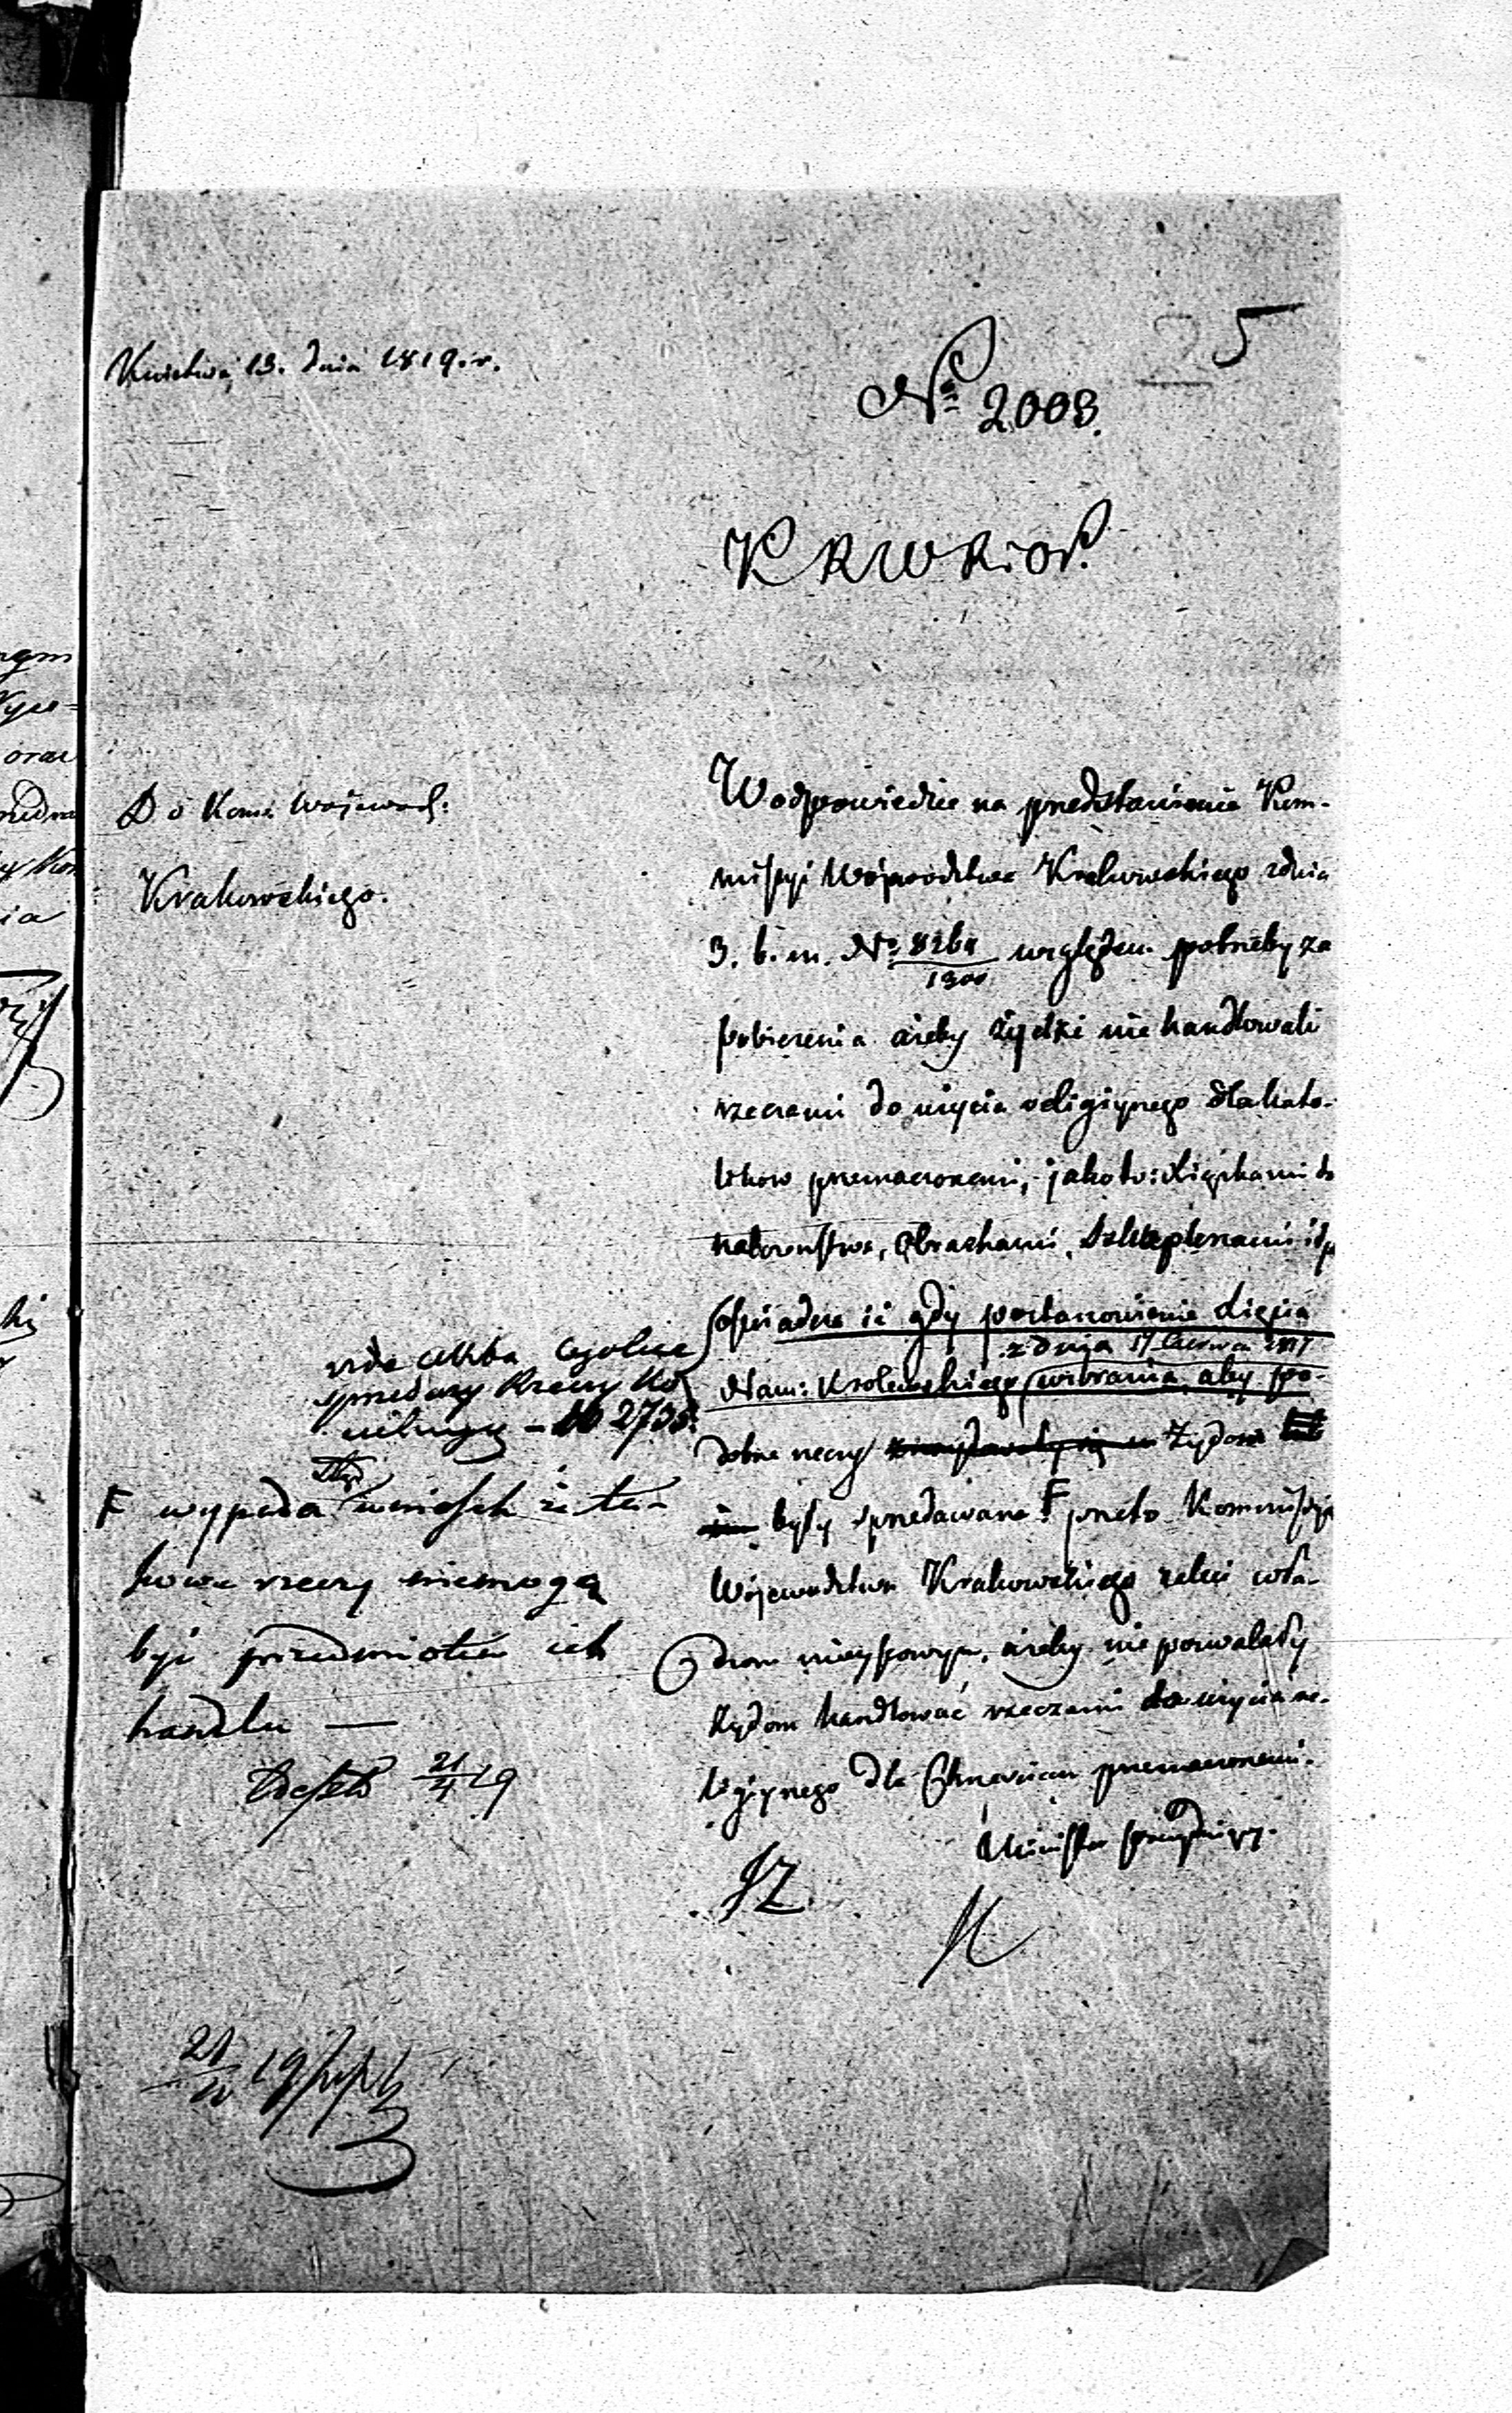 5
Kwietnia 13. dnia 1819. r.
No 2003.
K R W R i O P.
Do Komi: Wojewodz:
Krakowskiego.
W odpowiedzie na przedstawienie Kom-
missyi Wojewodztwa Krakowskiego z dnia
3. b. m. No względem potrzeby za
pobieżenia ażeby żydki nie handlowali
rzeczami do użycia religiynego dla kato-
likow przeznaczonemi, jako to: Książkami do
nabożeństwa, Obrazkami, Szkaplerzami itp
oświadcza iż gdy postanowienie Xięcia
z dnia 17 Czerwca 1817
Nam: Krolewskiego zabrania, aby po-
dobne rzeczy Żydom
były sprzedawane F przeto Kommissyja
Wojewodztwa Krakowskiego zaleci wła-
dzom mieyscowym, ażeby nie pozwalały
Żydom handlować rzeczami do użycia re-
ligiynego dla Chrześcian przeznaczonemi.
Minister prezyduiący.
vide akta
sprzedaży Rzeczy Ko
- No 2735.
ztąd
F wypada wniosek iż ta-
kowe rzeczy niemogą
być przedmiotem ich
handlu —
21/4 19
JZ
21/IV 19